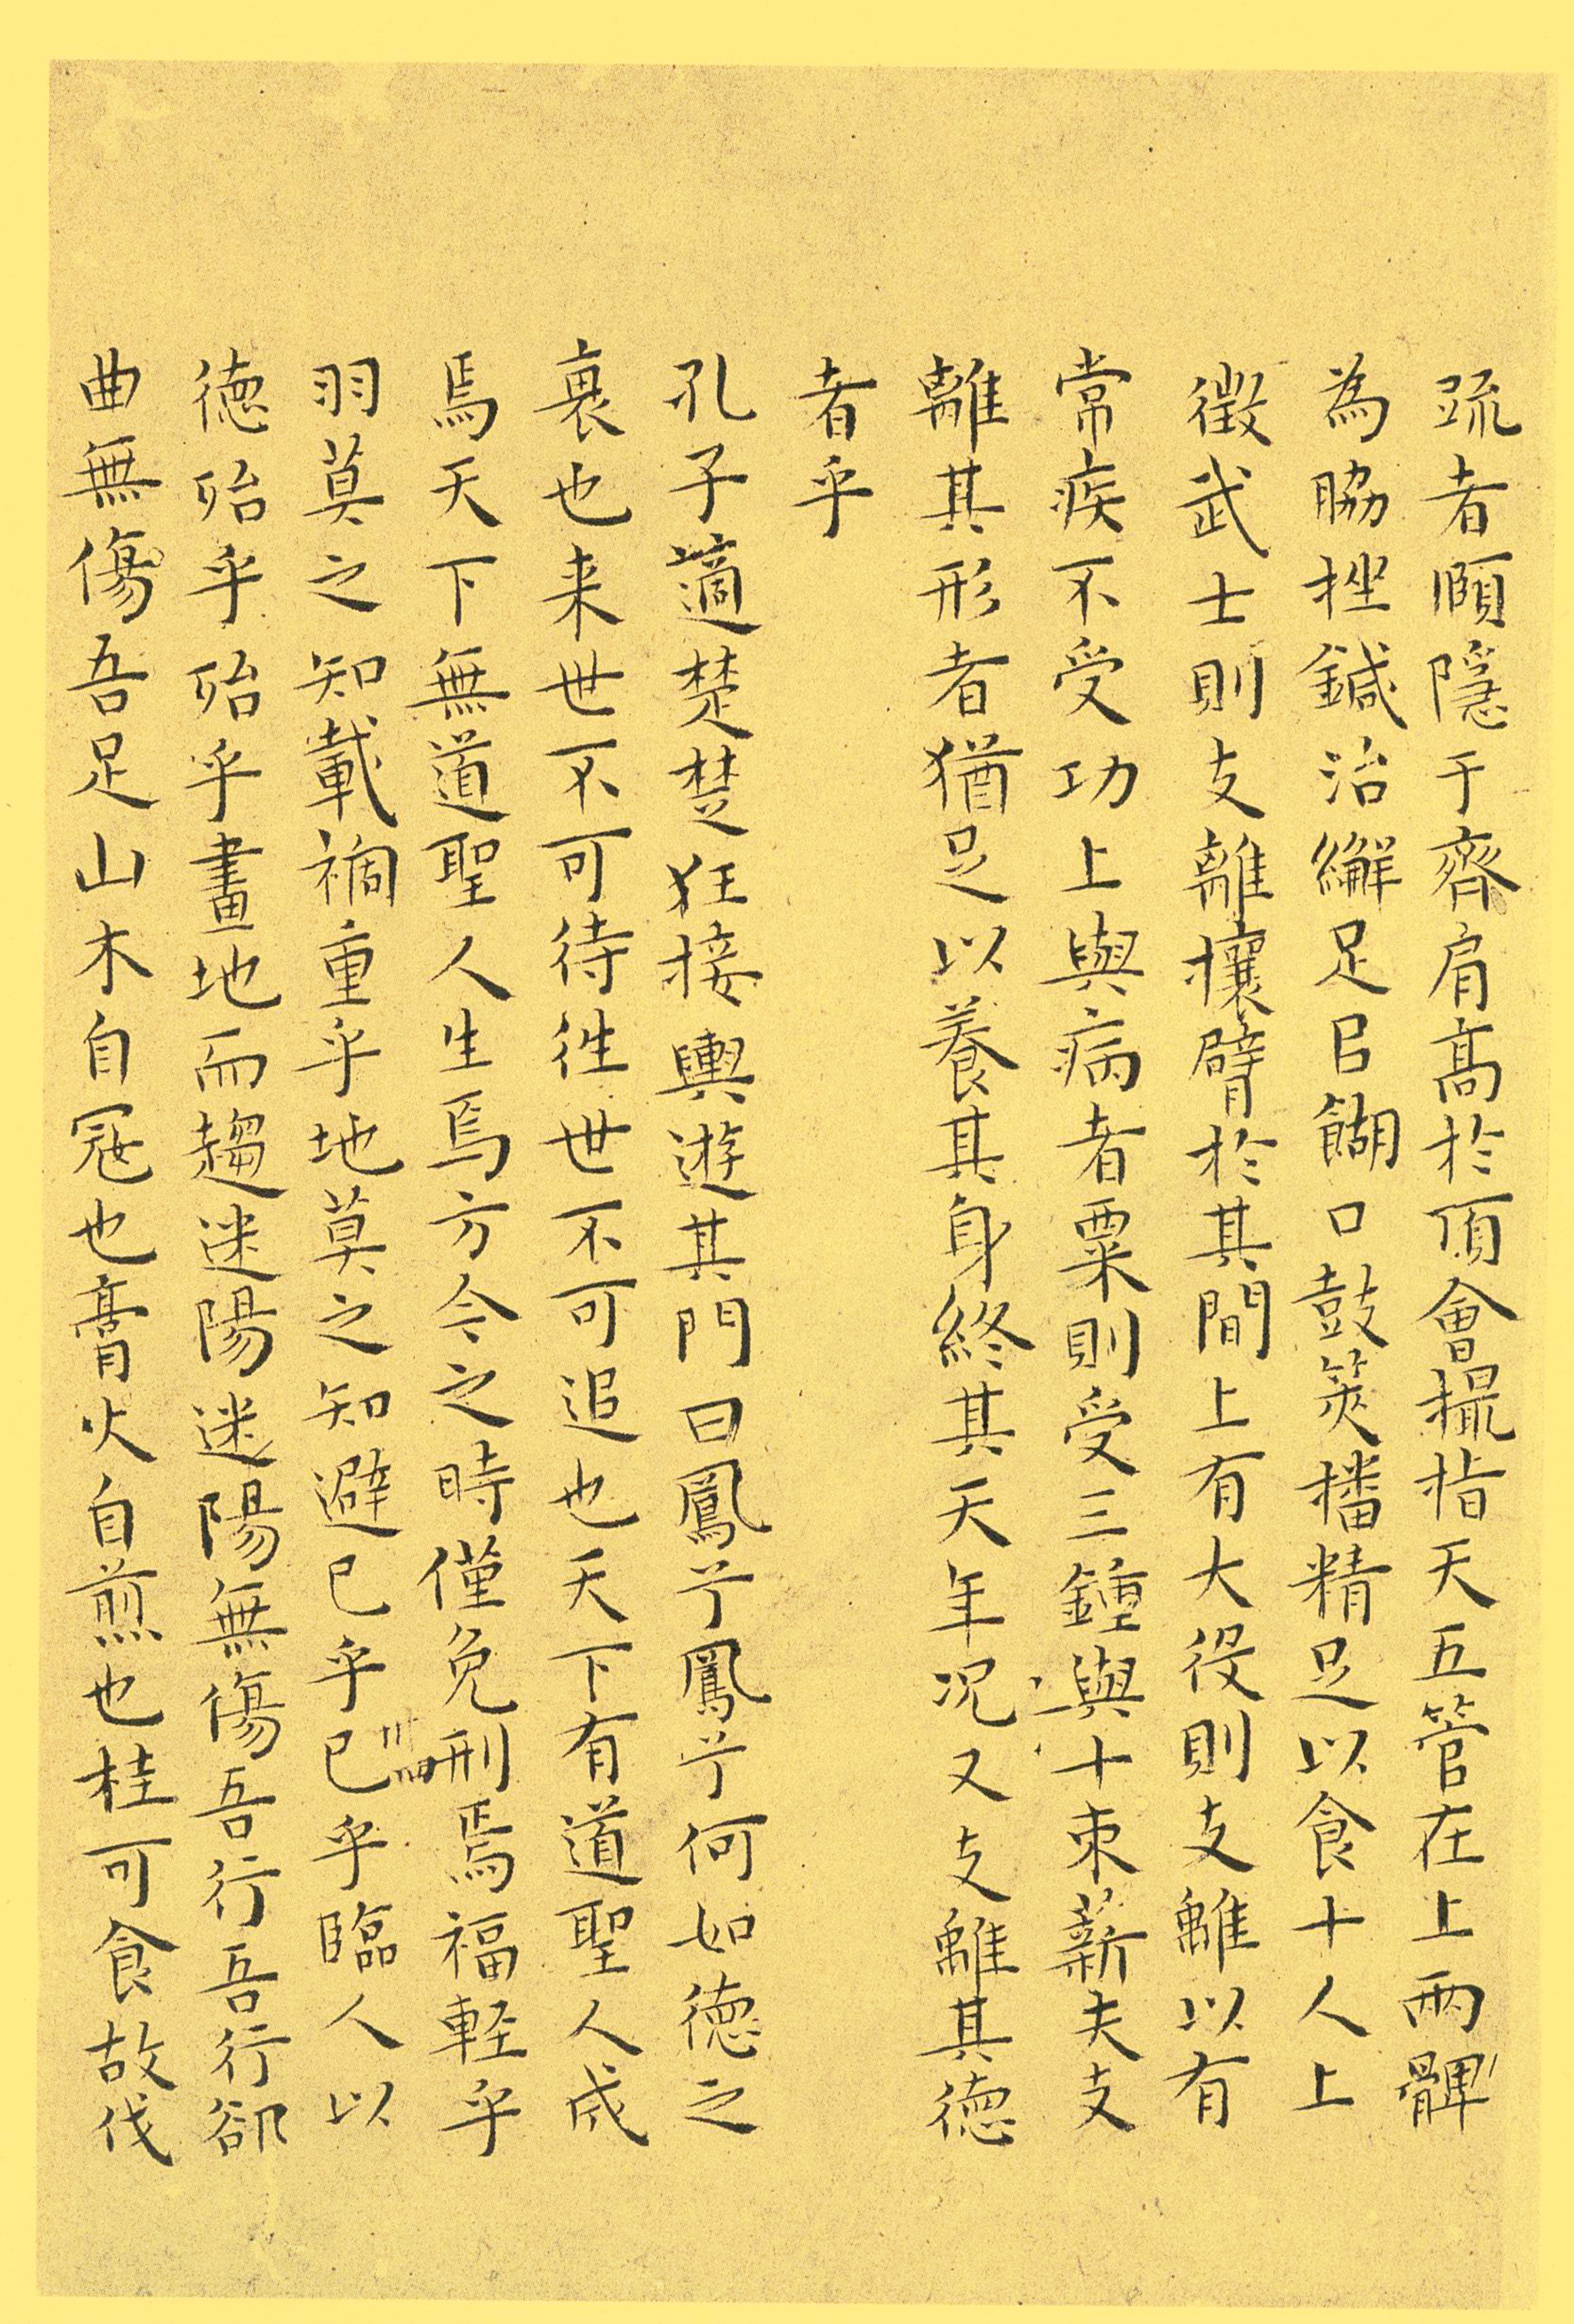 疏者頤隱于齊肩高於頂會撮指天五管在上兩髀
為脇挫鍼治繲足㠯餬口鼓筴播精足以食十人上
徵武士則支離攘臂於其間上有大役則支離以有
常疾不受功上與病者粟則受三鍾與十束薪夫支
離其形者猶足以養其身終其天年况又支離其德
者乎
孔子適楚楚狂接輿遊其門曰鳳兮鳳兮何如德之
衰也来世不可待徃世不可追也天下有道聖人成
焉天下無道聖人生焉方今之時僅免刑焉福輕乎
羽莫之知載禍重乎地莫之知避已乎已乎臨人以
德殆乎殆乎畫地而趨迷陽迷陽無傷吾行吾行郤
曲無傷吾足山木自冦也膏火自煎也桂可食故伐